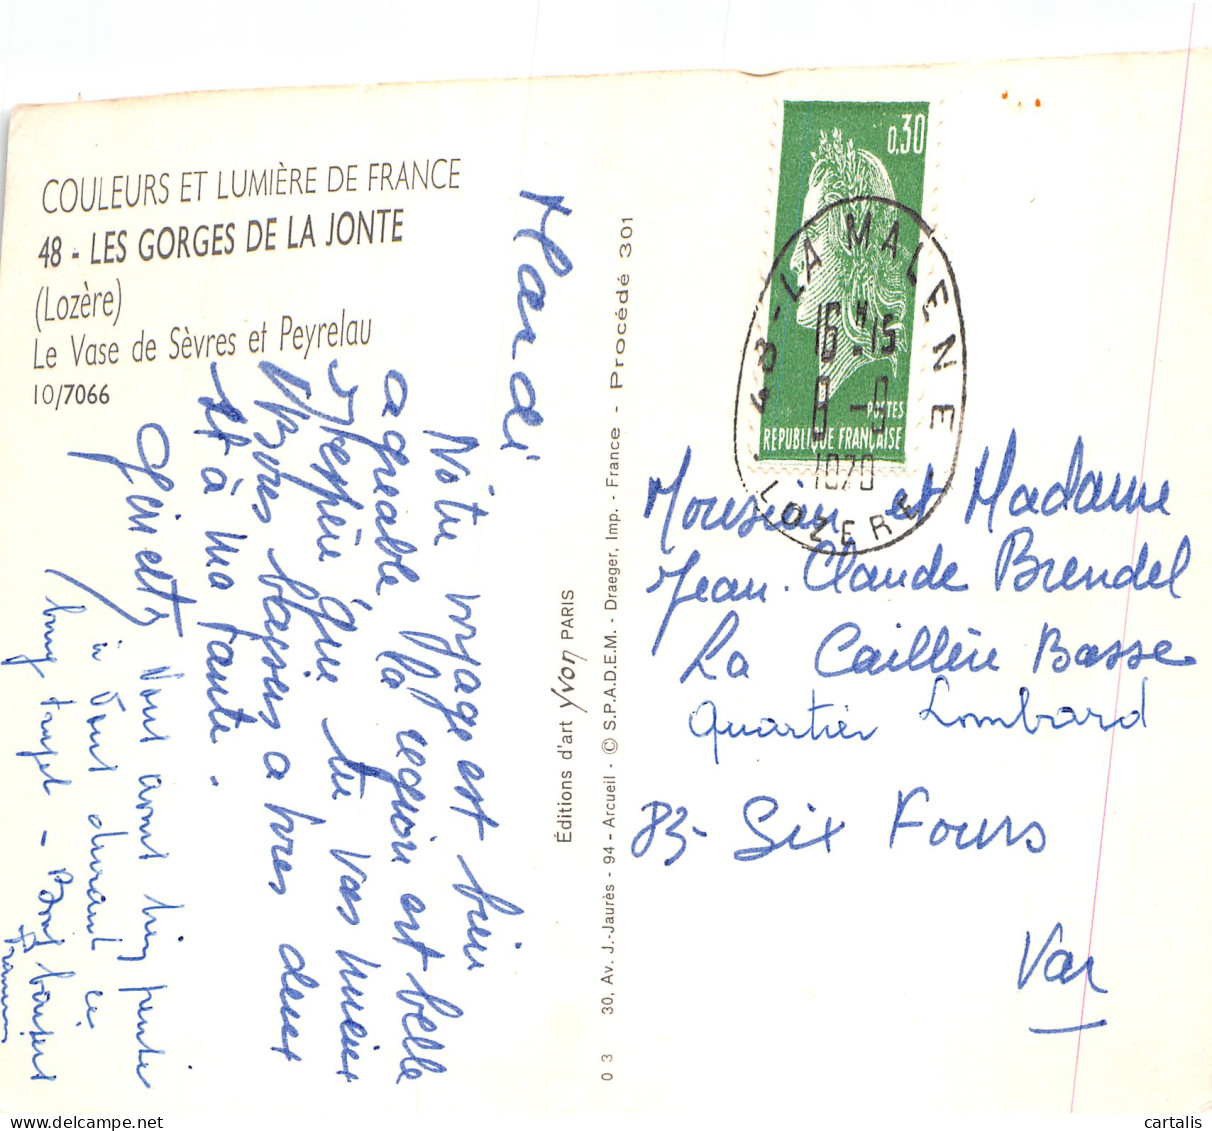 COULEURS ET LUMIÈRE DE FRANCE
48 - LES GORGES DE LA JONTE
(Lozère)
Le Vase de Sèvres et Peyrelau
10/7066
Mardi
Notre voyage est bien
agréable la région est belle
J'espère que tu vas mieux
Gros baisers a vous deux
et à ma tante.
Nous avons bien pensé
à vous durant ce
long trajet - Bons baisers
Éditions d'art Yvon PARIS
0 3 30, Av. J.-Jaurès - 94 - Arcueil - © S.P.A.D.E.M. - Draeger, Imp. - France - Procédé 301
0,30
POSTES
RÉPUBLIQUE FRANÇAISE
48 - LA MALENE
16 H 15
8 - 9
1970
LOZERE
Monsieur et Madame
Jean. Claude Brendel
La Caillère Basse
Quartier Lombard
83- Six Fours
Var
cartalis